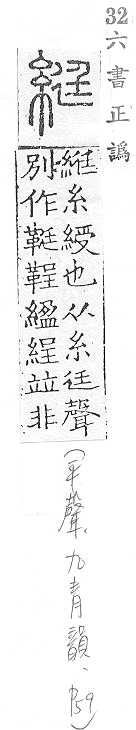 32 六書正譌
綎
綎糸綬也从糸廷聲
別作䩠鞓竝非
(平聲、九青韻、P59)